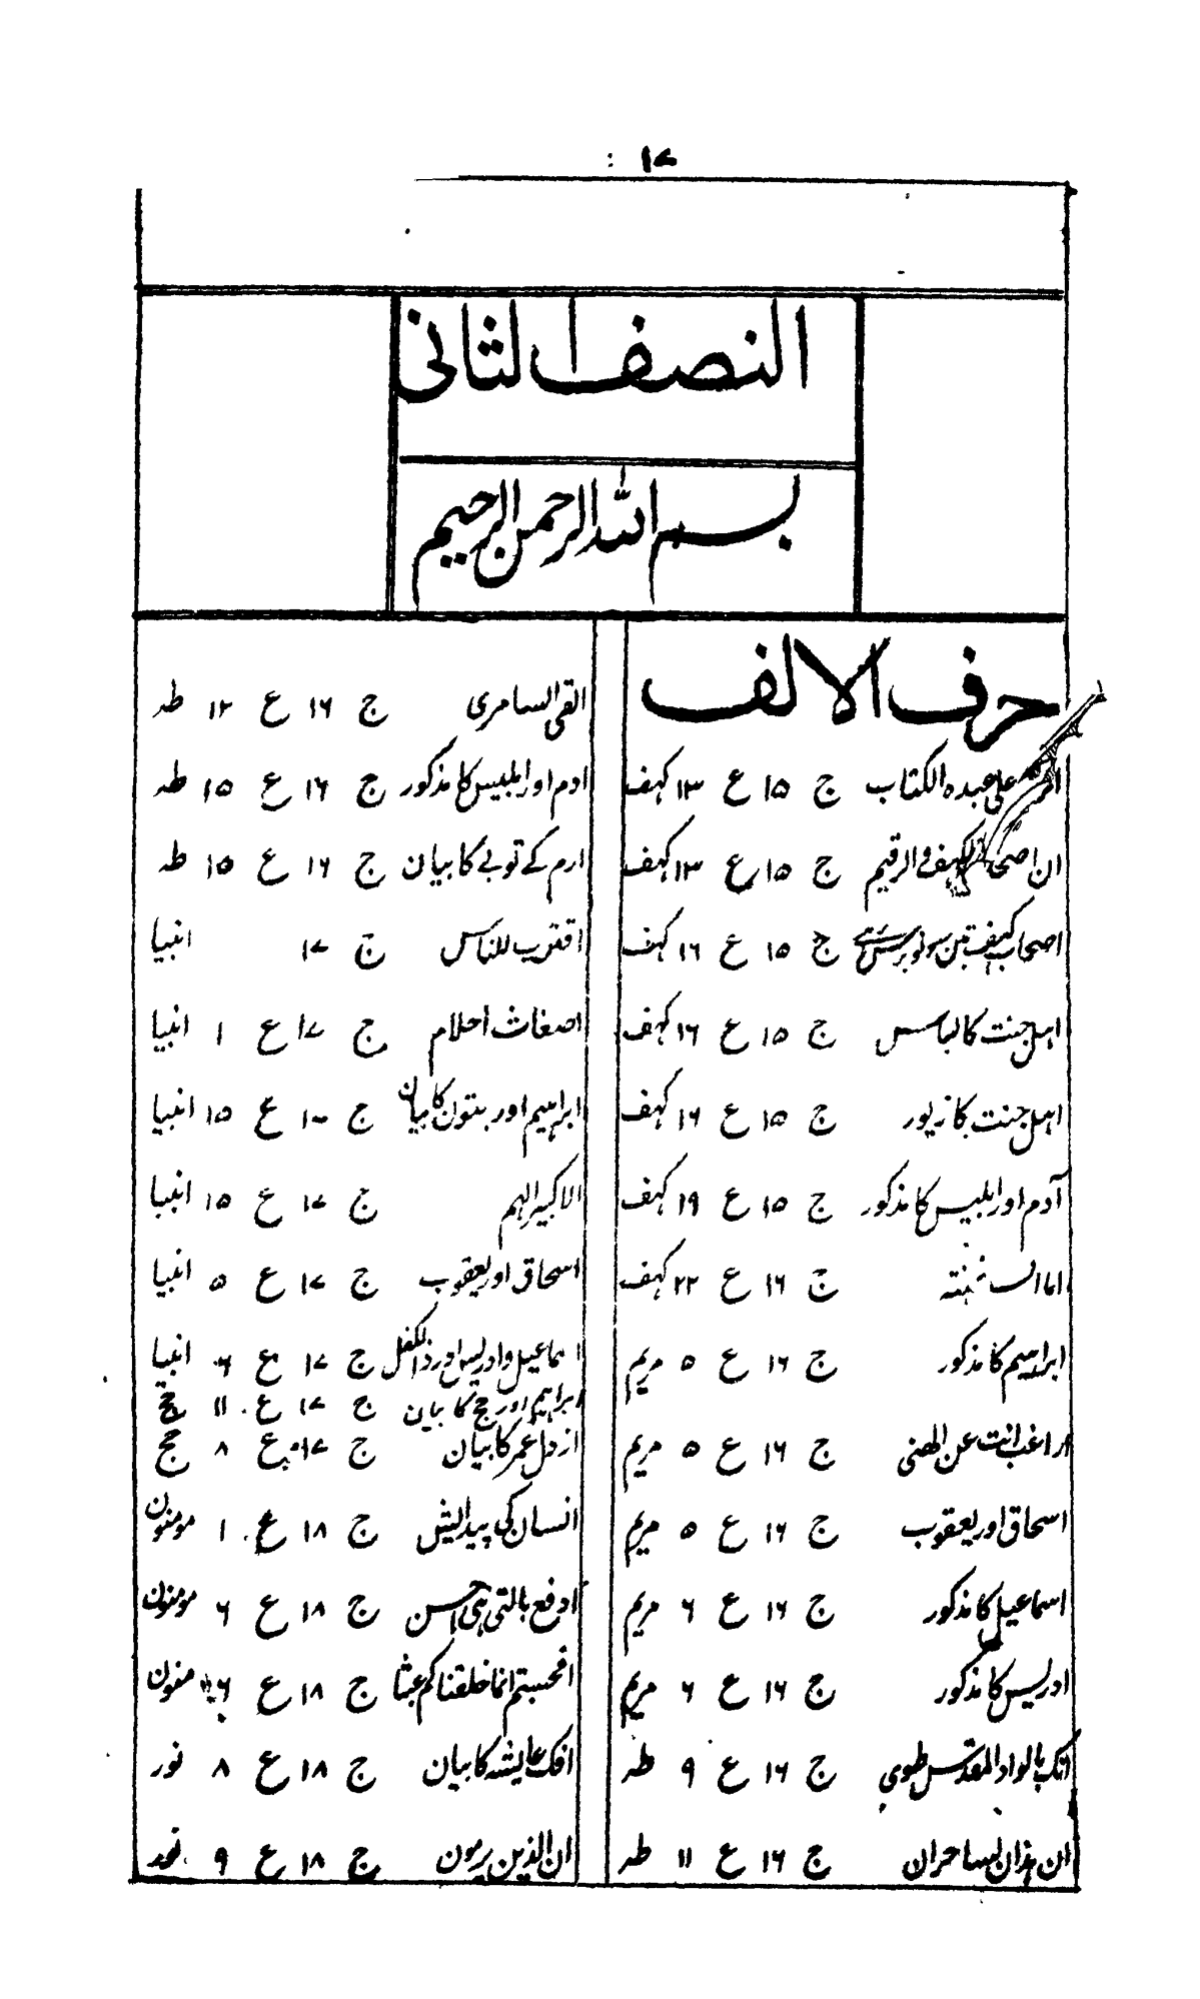 ۱۷
النصف الثانی
بسم الله الرحمن الرحیم
حرف الالف
علی عبده الکتاب ج ۱۵ ع ۱۳ کہف
ان اصحاب الکہف والرقیم ج ۱۵ ع ۱۳ کہف
اصحاب کہف تین سو نو برس ج ۱۵ ع ۱۶ کہف
اہل جنت کا لباس ج ۱۵ ع ۱۶ کہف
اہل جنت کا زیور ج ۱۵ ع ۱۶ کہف
آدم اور ابلیس کا مذکور ج ۱۵ ع ۱۹ کہف
اما السفینتہ ج ۱۶ ع ۲۲ کہف
ابراہیم کا مذکور ج ۱۶ ع ۵ مریم
اراغب انت عن الھتی ج ۱۶ ع ۵ مریم
اسحاق اور یعقوب ج ۱۶ ع ۵ مریم
اسماعیل کا مذکور ج ۱۶ ع ۶ مریم
ادریس کا مذکور ج ۱۶ ع ۶ مریم
انک بالواد المقدس طوی ج ۱۶ ع ۹ طہ
ان ہذان لساحران ج ۱۶ ع ۱۱ طہ
القی السامری ج ۱۶ ع ۱۲ طہ
ادم اور ابلیس کا مذکور ج ۱۶ ع ۱۵ طہ
ادم کے توبے کا بیان ج ۱۶ ع ۱۵ طہ
اقترب للناس ج ۱۷ انبیا
اضغاث احلام ج ۱۷ ع ۱ انبیا
ابراہیم اور بتون کا بیان ج ۱۷ ع ۱۵ انبیا
الا کبیرا لہم ج ۱۷ ع ۱۵ انبیا
اسحاق اور یعقوب ج ۱۷ ع ۵ انبیا
اسماعیل و ادریس اور ذالکفل ج ۱۷ ع ۶ انبیا
ابراہیم اور حج کا بیان ج ۱۷ ع ۱۱ حج
ارذل عمر کا بیان ج ۱۷ ع ۸ حج
انسان کی پیدایش ج ۱۸ ع ۱ مومنون
ادفع بالتی ہی احسن ج ۱۸ ع ۶ مومنون
افحسبتم انما خلقناکم عبثا ج ۱۸ ع ۶ منون
افک عایشہ کا بیان ج ۱۸ ع ۸ نور
ان الذین یرمون ج ۱۸ ع ۹ نور